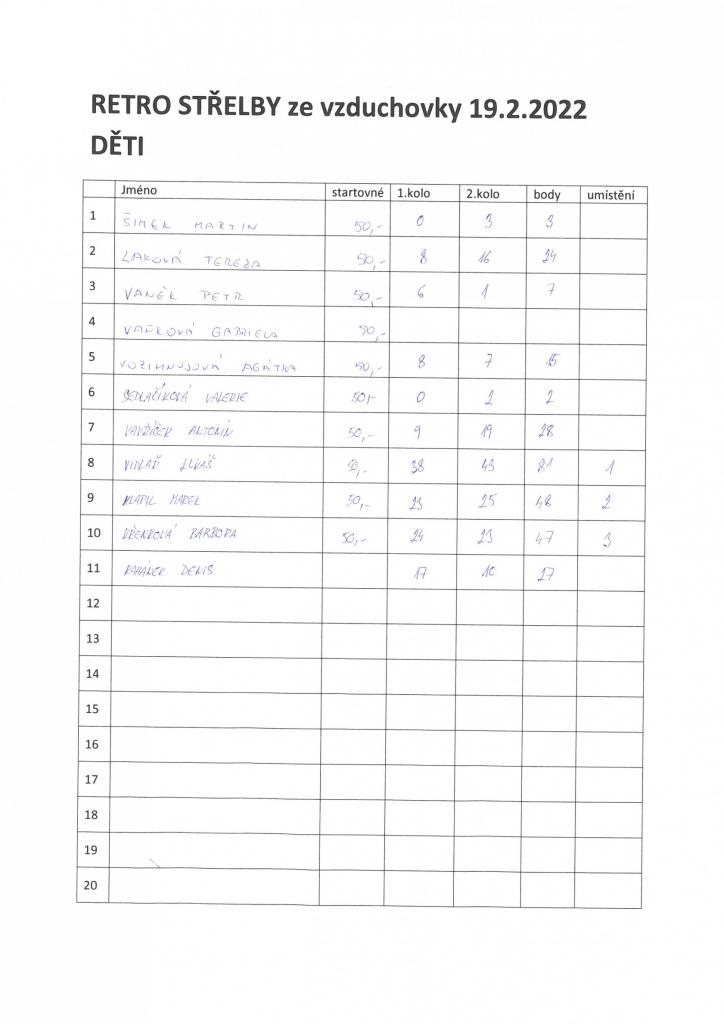 RETRO STŘELBY ze vzduchovky 19.2.2022
DĚTI
Jméno startovné 1.kolo 2.kolo body umístění
1 ŠIMEK MARTIN 50,- 0 3 3
2 LAKOVÁ TEREZA 50,- 8 16 24
3 VANĚK PETR 50,- 6 1 7
4 VAŇKOVÁ GABRIELA 50,-
5 AGÁTKA 50,- 8 7 15
6 SEDLAŘÍKOVÁ VALERIE 50,- 0 2 2
7 VAVŘÍČEK ANTONÍN 50,- 9 19 28
8 VIDLAŘ LUKÁŠ 50,- 38 43 81 1
9 KLAPIL MAREK 50,- 23 25 48 2
10 KŘENKOVÁ BARBORA 50,- 24 23 47 3
11 KAHÁNEK DENIS 17 10 27
12
13
14
15
16
17
18
19
20